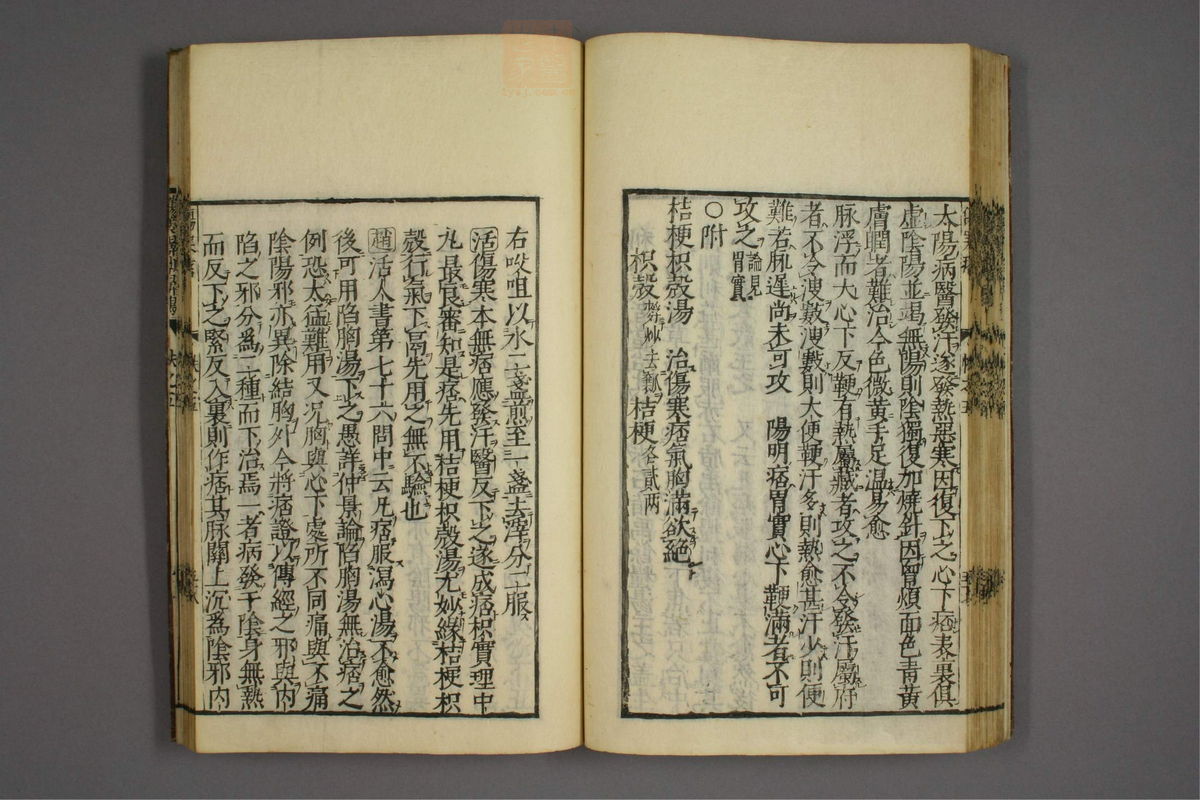 太陽病醫發汗遂發熱惡寒因復下之心下痞表裏俱
虛陰陽並竭無陽則陰獨復加燒針因胷煩面色靑黃
膚瞤者難治今色微黃手足温易愈
脉浮而大心下反鞕有熱屬藏者攻之不令發汗屬府
者不令溲數溲數則大便鞕汗多則熱愈甚汗少則便
難若脈遲尚未可攻　陽明痞胃實心下鞕滿者不可
攻之論見胃實
〇附
桔梗枳殼湯　治傷寒痞氣胸滿欲絕
枳殼麩炒去瓤桔梗各貳兩
右㕮咀以水二盞煎至一盞去滓分二服
活傷寒本無痞應發汗醫反下之遂成痞枳實理中
丸最良審知是痞先用桔梗枳殼湯尤妙緣桔梗枳
殼行氣下膈先用之無不驗也
趙活人書第七十六問中云凡痞服瀉心湯不愈然
後可用陷胸湯下之愚詳仲景論陷胸湯無治痞之
例恐太猛難用又况胸與心下處所不同痛與不痛
陰陽邪亦異除結胸外今將痞證以傳經之邪與内
陷之邪分爲二種而下治焉一者病發于陰身無熱
而反下之緊反入裏則作痞其脉關上沉為陰邪内